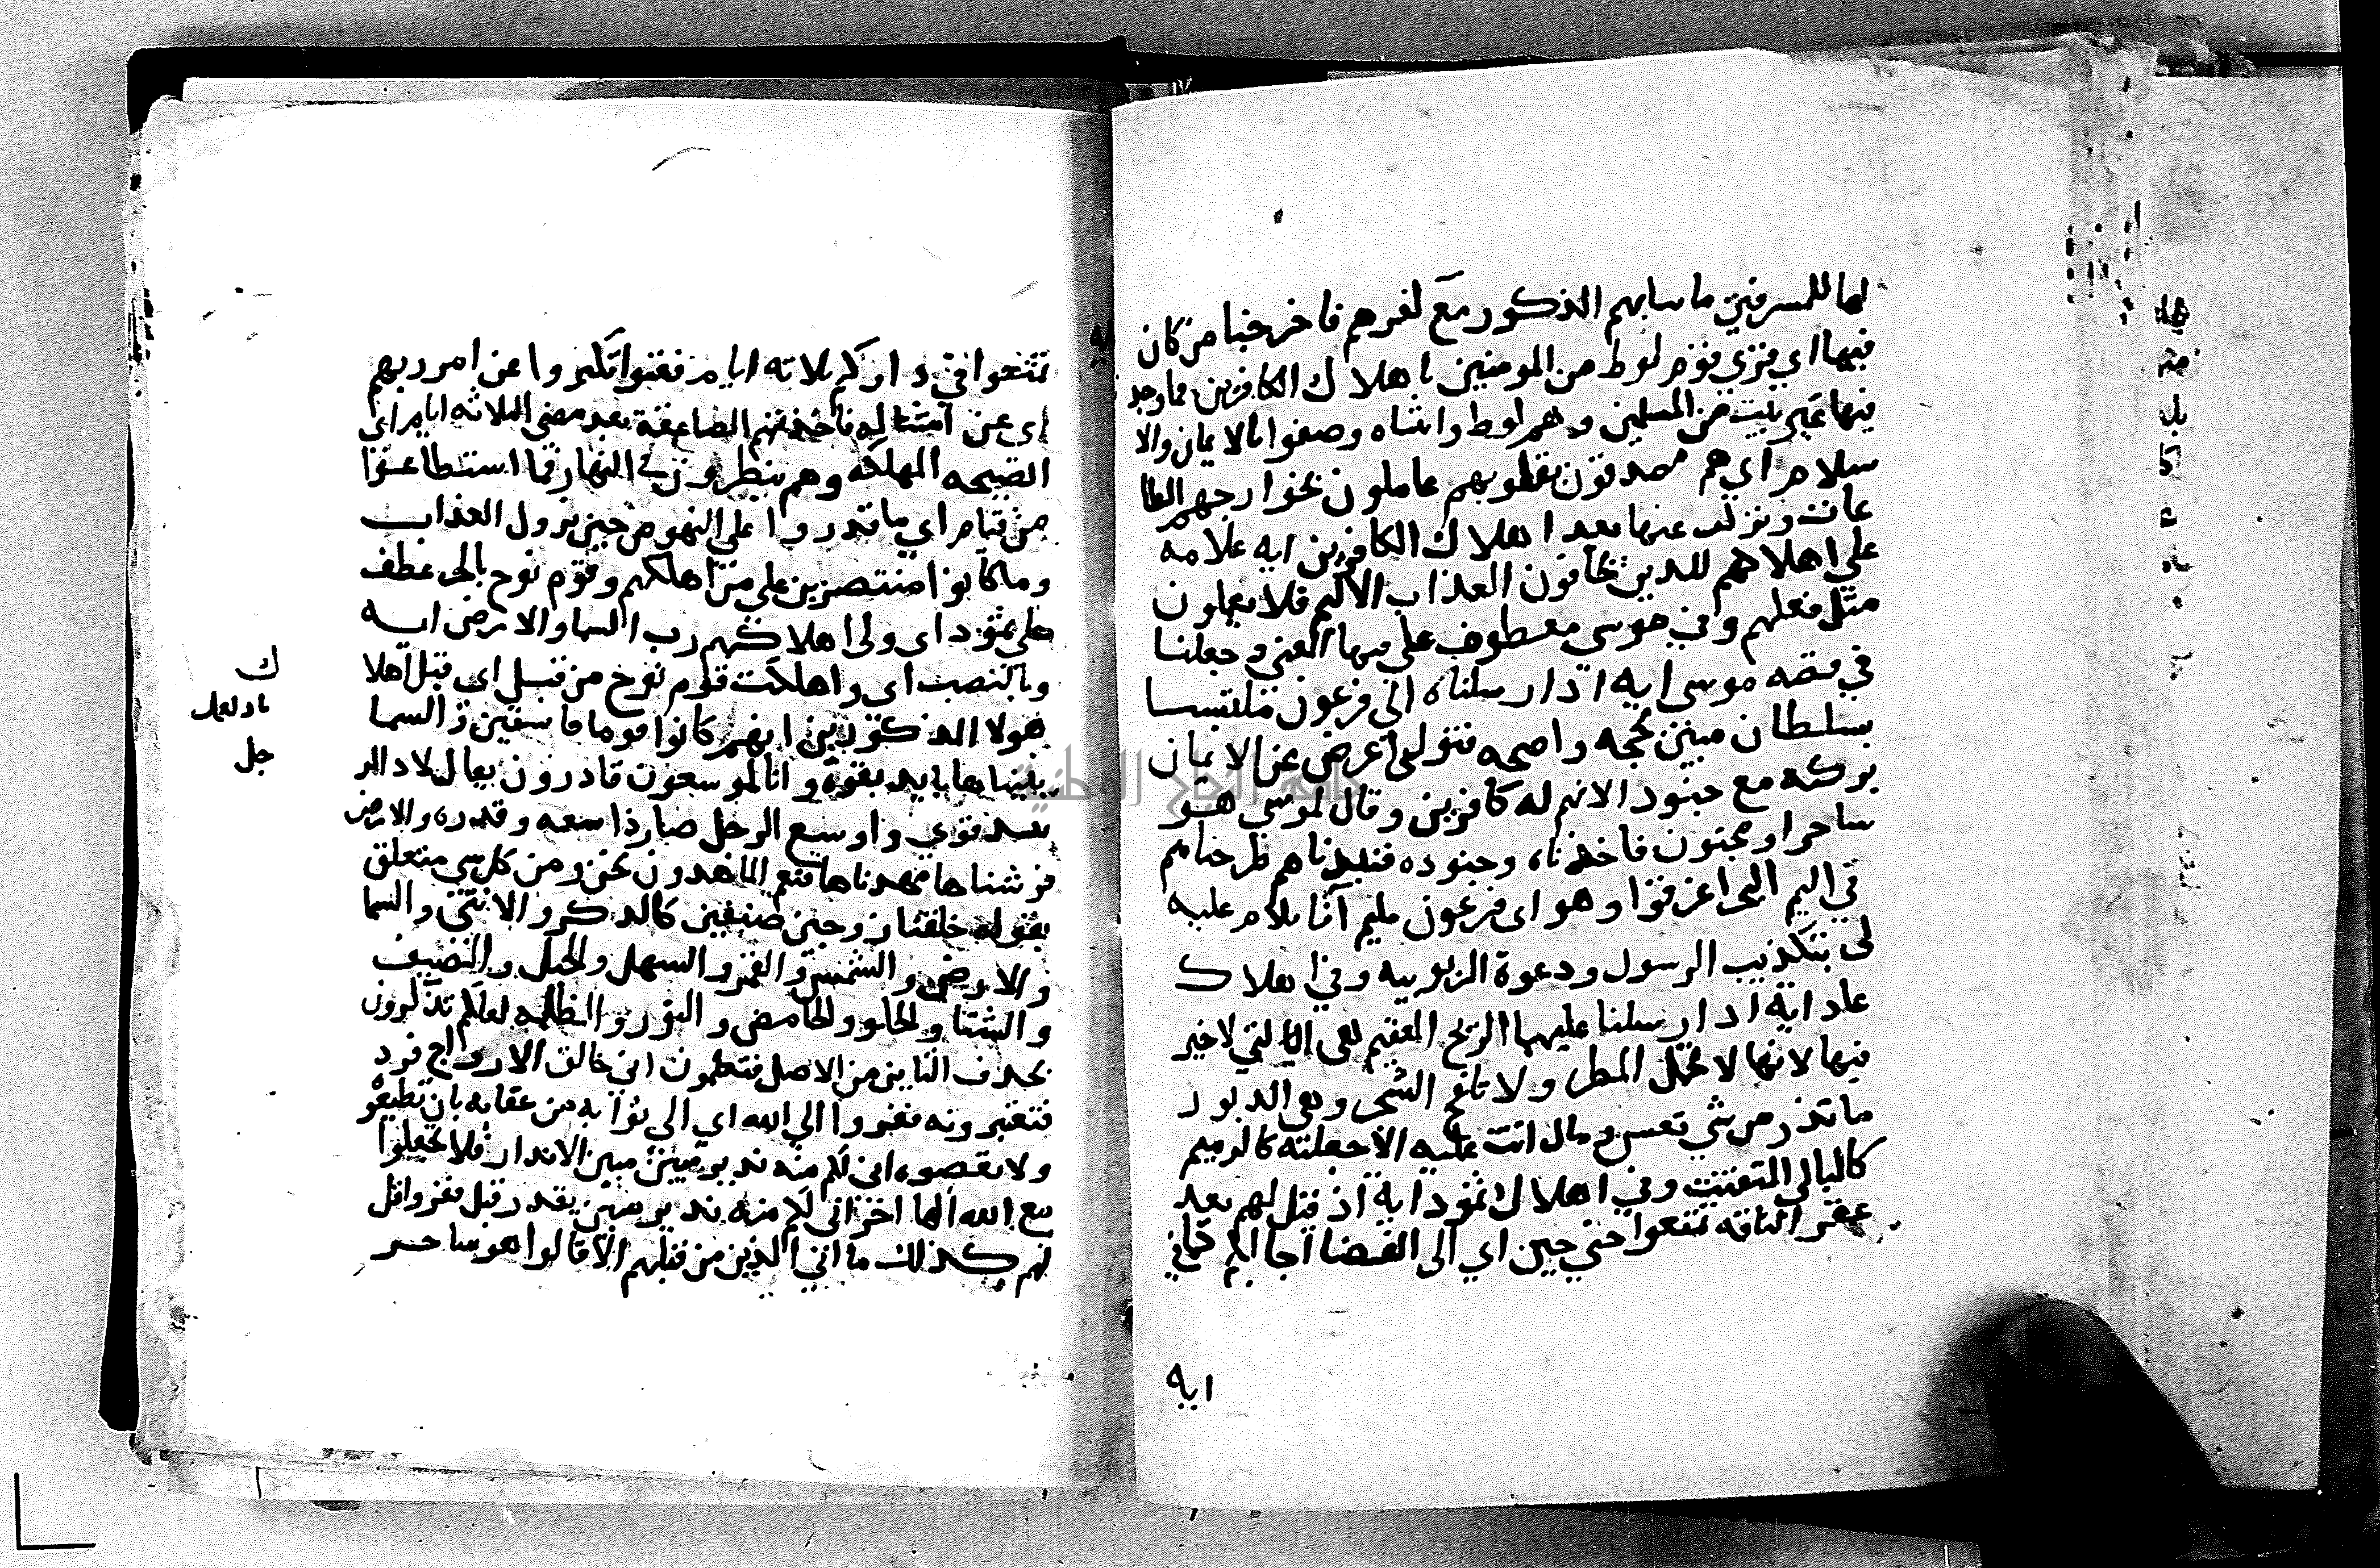 لها للمسرفين باتيانهم الذكور مع كفرهم فاخرجنا من كان
فيها اي قري قوم لوط من المومنين باهلاك الكافرين فما وجد
فيها غير بيت من المسلمين وهم لوط وابنتاه وصفوا بالايمان والا
سلام اي هم مصدقون بقلوبهم عاملون بجوارحهم الطا
عات وتركنا فيها بعد اهلاك الكافرين ايه علامه
علي اهلاكهم للذين يخافون العذاب الاليم فلا يفعلون
مثل فعلهم وفي موسى معطوف علي فيها المعني وجعلنا
في قصه موسى ايه اذ ارسلناه الي فرعون متلبسا
بسلطان مبين بحجه واضحه فتولى اعرض عن الايمان
بركنه مع جنوده لانهم له كالركن وقال لموسي هو
ساحر او مجنون فاخذناه وجنوده فنبذناهم طرحناهم
في اليم البحر فغرقوا وهو اى فرعون مليم آت بما يلام عليه
من تكذيب الرسول ودعوة الربوبيه وفي اهلاك
عاد اية اذ ارسلنا عليهم الريح العقيم هى التي لا خير
فيها لانها لا تحمل المطر ولا تلقح الشجر وهى الدبور
ما تذر من شي نفس و مال اتت عليه الا جعلته كالرميم
كالبالي المتفتت وفي اهلاك ثمود اية اذ قيل لهم بعد
عقر الناقه تمتعوا حتي حين اي الى انقضا اجالكم كما في
ايه
تمتعوا في داركم ثلاثه ايام فعتوا تكبروا عن امر ربهم
اى عن امتثاله فاخذتهم الصاعقة بعد مضى الثلاثه ايام اي
الصيحه المهلكه وهم ينظرون في النهار فما استطاعوا
من قيام اي ما قدروا علي النهوض حين نزول العذاب
وما كانوا منتصرين علي من اهلكهم وقوم نوح بالجر عطف
على ثمود اى وفى اهلاكهم رب السما والارض ايه
وبالنصب اى واهلكت قوم نوح من قبل اى قبل اهلا
ك
هولا المذكورين انهم كانوا قوما فاسقين و السما
بنيناها بايد بقوة وانا لموسعون قادرون يقال لاد الر
جل
يئيد قوي واوسع الرجل صار ذا سعه وقدره والارض
فرشناها مهدناها فنعم الماهدون نحن ومن كل شي متعلق
بقوله خلقنا زوجين صنفين كالذكر والانثى والسما
والارض والشمس والقمر والسهل والجبل والصيف
والشتا والحلو والحامض والنور والظلمه لعلكم تذكرون
بحذف التاين من الاصل فتعلمون ان خالق الازواج فرد
فتعبدونه ففروا الي الله اي الى ثوابه من عقابه بان تطيعوه
ولا تعصوه انى لكم منه نذير مبين مبين الانذار ولا تجعلوا
مع الله الها اخر انى لكم منه نذير مبين يقدر قبل ففروا قل
لهم كذلك ما اتي الذين من قبلهم الا قالوا هو ساحر